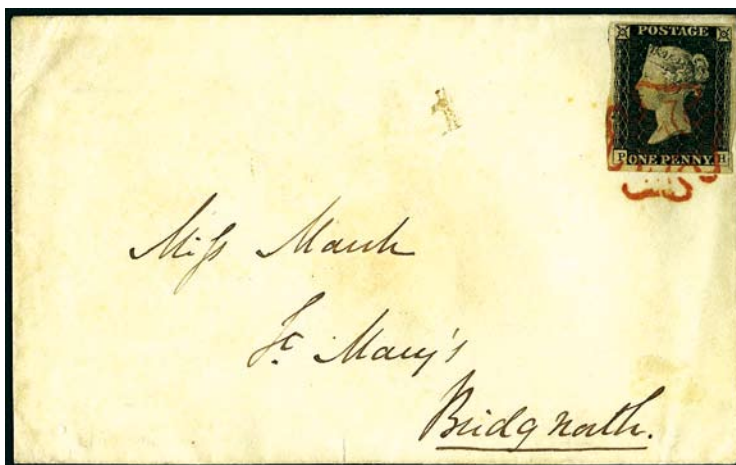 POSTAGE
P ONE PENNY H
1
Miss
St Mary's
Bridgnorth.